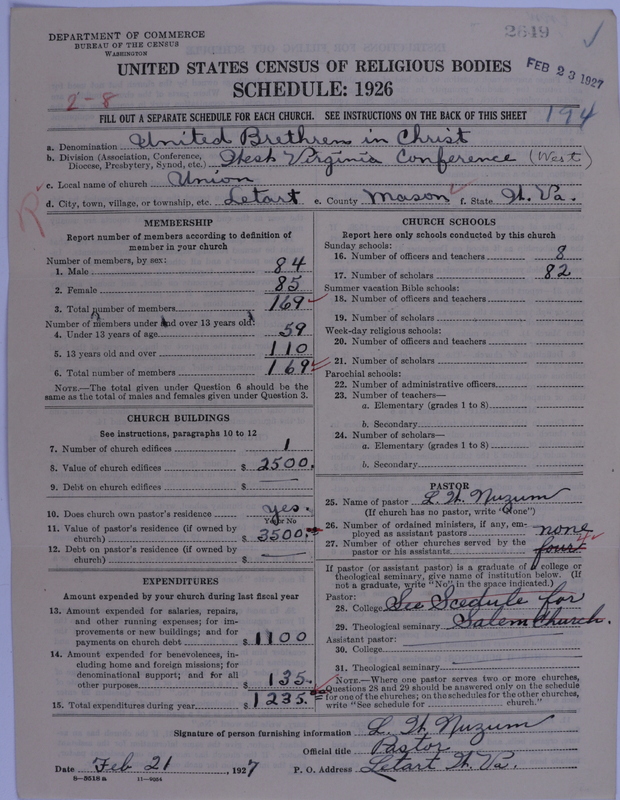 DEPARTMENT OF COMMERCE
BUREAU OF THE CENSUS
WASHINGTON
2649
FEB 23 1927
UNITED STATES CENSUS OF RELIGIOUS BODIES
SCHEDULE: 1926
2-8
194
FILL OUT A SEPARATE SCHEDULE FOR EACH CHURCH. SEE INSTRUCTIONS ON THE BACK OF THIS SHEET
a. Denomination United Brethren in Christ
b. Division (Association, Conference, Diocese, Presbytery, Synod, etc.) West Virginia Conference (West)
c. Local name of church Union
R
d. City, town, village, or township, etc. Letart e. County Mason f. State W. Va.
MEMBERSHIP
Report number of members according to definition of
member in your church
Number of members, by sex:
1. Male 84
2. Female 85
3. Total number of members 169
Number of members under and over 13 years old:
4. Under 13 years of age 59
5. 13 years old and over 110
6. Total number of members 169
NOTE.—The total given under Question 6 should be the
same as the total of males and females given under Question 3.
CHURCH BUILDINGS
See instructions, paragraphs 10 to 12
7. Number of church edifices 1
8. Value of church edifices $ 2500.
9. Debt on church edifices $
10. Does church own pastor's residence yes.
Yes or No
11. Value of pastor's residence (if owned by
church) $ 3500.
12. Debt on pastor's residence (if owned by
church) $
EXPENDITURES
Amount expended by your church during last fiscal year
13. Amount expended for salaries, repairs,
and other running expenses; for im-
provements or new buildings; and for
payments on church debt $ 1100
14. Amount expended for benevolences, in-
cluding home and foreign missions; for
denominational support; and for all
other purposes $ 135.
15. Total expenditures during year $ 1235.
CHURCH SCHOOLS
Report here only schools conducted by this church
Sunday schools:
16. Number of officers and teachers 8
17. Number of scholars 82
Summer vacation Bible schools:
18. Number of officers and teachers
19. Number of scholars
Week-day religious schools:
20. Number of officers and teachers
21. Number of scholars
Parochial schools:
22. Number of administrative officers
23. Number of teachers—
a. Elementary (grades 1 to 8)
b. Secondary
24. Number of scholars—
a. Elementary (grades 1 to 8)
b. Secondary
PASTOR
25. Name of pastor L. W. Nuzum
(If church has no pastor, write "None")
26. Number of ordained ministers, if any, em-
ployed as assistant pastors none
27. Number of other churches served by the
pastor or his assistants four 4
If pastor (or assistant pastor) is a graduate of a college or
theological seminary, give name of institution below. (If
not a graduate, write "No" in the space indicated.)
Pastor:
28. College See Scedule for
29. Theological seminary Salem Church.
Assistant pastor:
30. College
31. Theological seminary
NOTE.—Where one pastor serves two or more churches,
Questions 28 and 29 should be answered only on the schedule
for one of the churches; on the schedules for the other churches,
write "See schedule for ______ church."
Signature of person furnishing information L. W. Nuzum
Official title Pastor
Date Feb 21, 1927 P. O. Address Letart W. Va.
8-5518a 11-9264